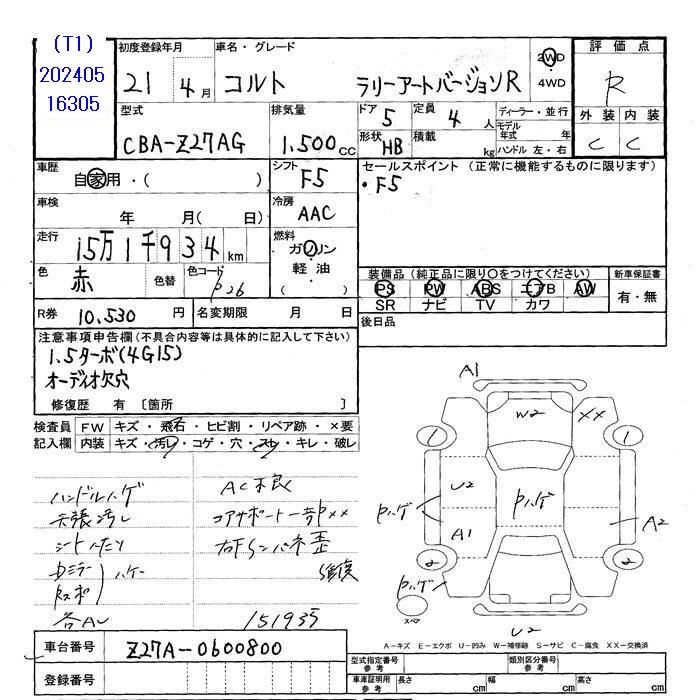 (T1)
202405
16305
初度登録年月
21 4月
車名・グレード
コルト ラリーアートバージョンR
2WD
・4WD
評価点
R
外装 内装
C C
型式
CBA-Z27AG
排気量
1.500cc
ドア 5
定員 4 人
形状 HB
積載 kg
ディーラー・並行
モデル年式 年
ハンドル 左・右
車歴
自家用・( )
シフト
F5
セールスポイント (正常に機能するものに限ります)
・F5
車検
年 月( 日)
冷房
AAC
走行
15万1千934km
燃料
ガソリン
軽油・
( )
色
赤
色替
色コード
P26
装備品(純正品に限り○をつけてください)
PS PW ABS エアB AW
SR ナビ TV カワ
新車保証書
有・無
R券 10,530 円
名変期限 月 日
後日品
注意事項申告欄(不具合内容等は具体的に記入して下さい)
1.5ターボ(4G15)
オーディオ欠穴
修復歴 有 [箇所 ]
検査員記入欄
FW キズ・飛石・ヒビ割・リペア跡・×要
内装 キズ・汚れ・コゲ・穴・スレ・キレ・破レ
ハンドルハゲ
天張汚し
シートヘたり
Dミラー
Rスポ
ハゲー
各AU
AC不良
コアサポート一部P××
右Fインパネ歪
修復
151935
A1
W2
××
1
1
U2
Pハゲ
Pハゲ
A1
A2
2
2
Pハゲ
スペア
U2
A-キズ E-エクボ U-凹み W-補修跡 S-サビ C-腐食 XX-交換済
車台番号 Z27A-0600800
登録番号
型式指定番号 参考
類別区分番号 参考
車庫証明用 参考
長さ cm
幅 cm
高さ cm